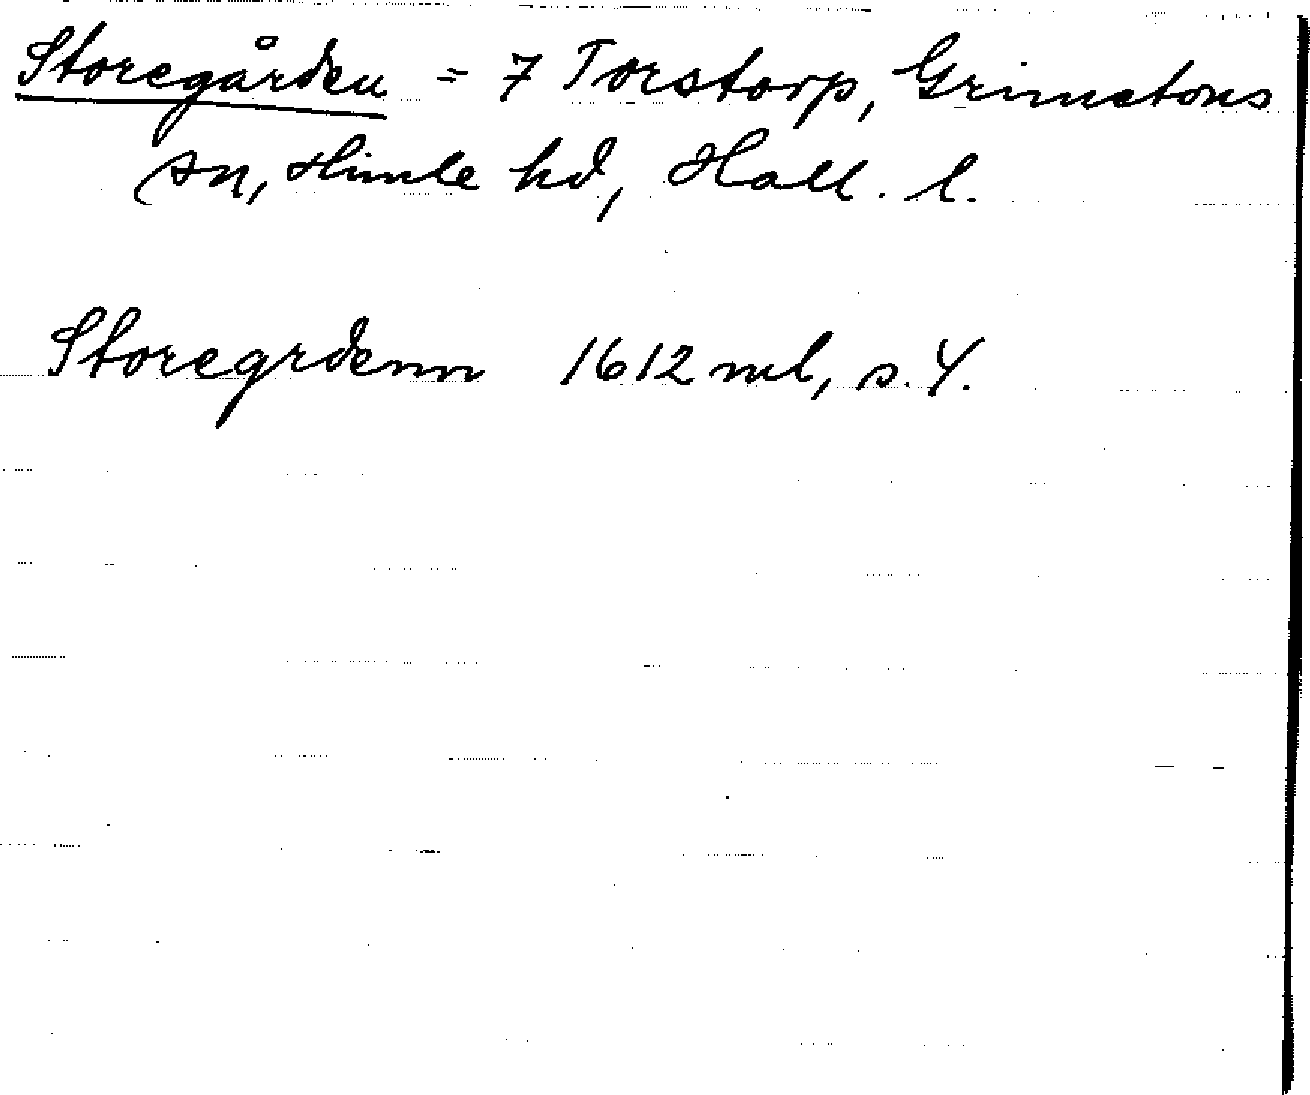 Storegården = 7 Torstorp, Grimetons
sn, Himle hd, Hall. l.
Storegrdenn 1612 ml, s. 4.